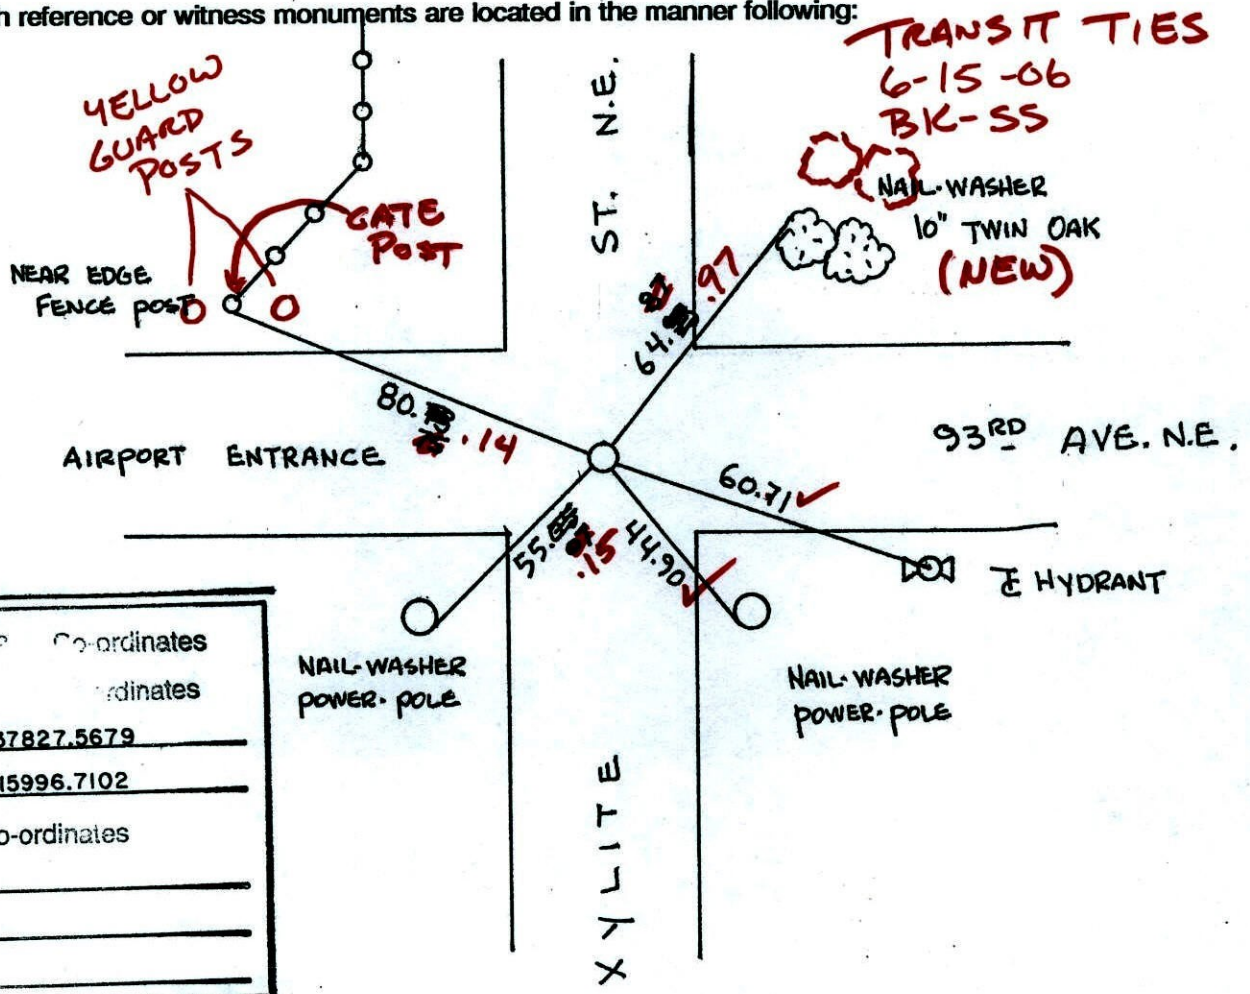 h reference or witness monuments are located in the manner following:
TRANSIT TIES
6-15-06
BK-SS
YELLOW
GUARD
POSTS
GATE
POST
NAIL-WASHER
10" TWIN OAK
(NEW)
NEAR EDGE
FENCE POST
ST. N.E.
64. .97
80. .14
AIRPORT ENTRANCE
93RD AVE. N.E.
60.71
55. .15
44.90
HYDRANT
NAIL-WASHER
POWER-POLE
NAIL-WASHER
POWER-POLE
XYLITE
Co-ordinates
rdinates
37827.5679
15996.7102
o-ordinates